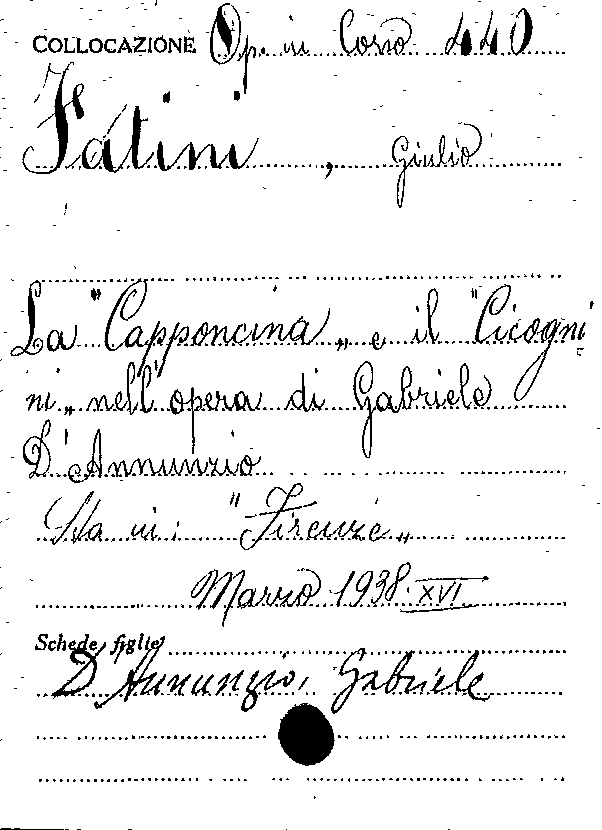 COLLOCAZIONE Op. in Corso 440
Fatini, Giulio
La "Capponcina„ e il "Cicogni
ni„ nell'opera di Gabriele
D'Annunzio
Sta in: "Firenze„
Marzo 1938. XVI
Schede figlie,
D'Annunzio, Gabriele